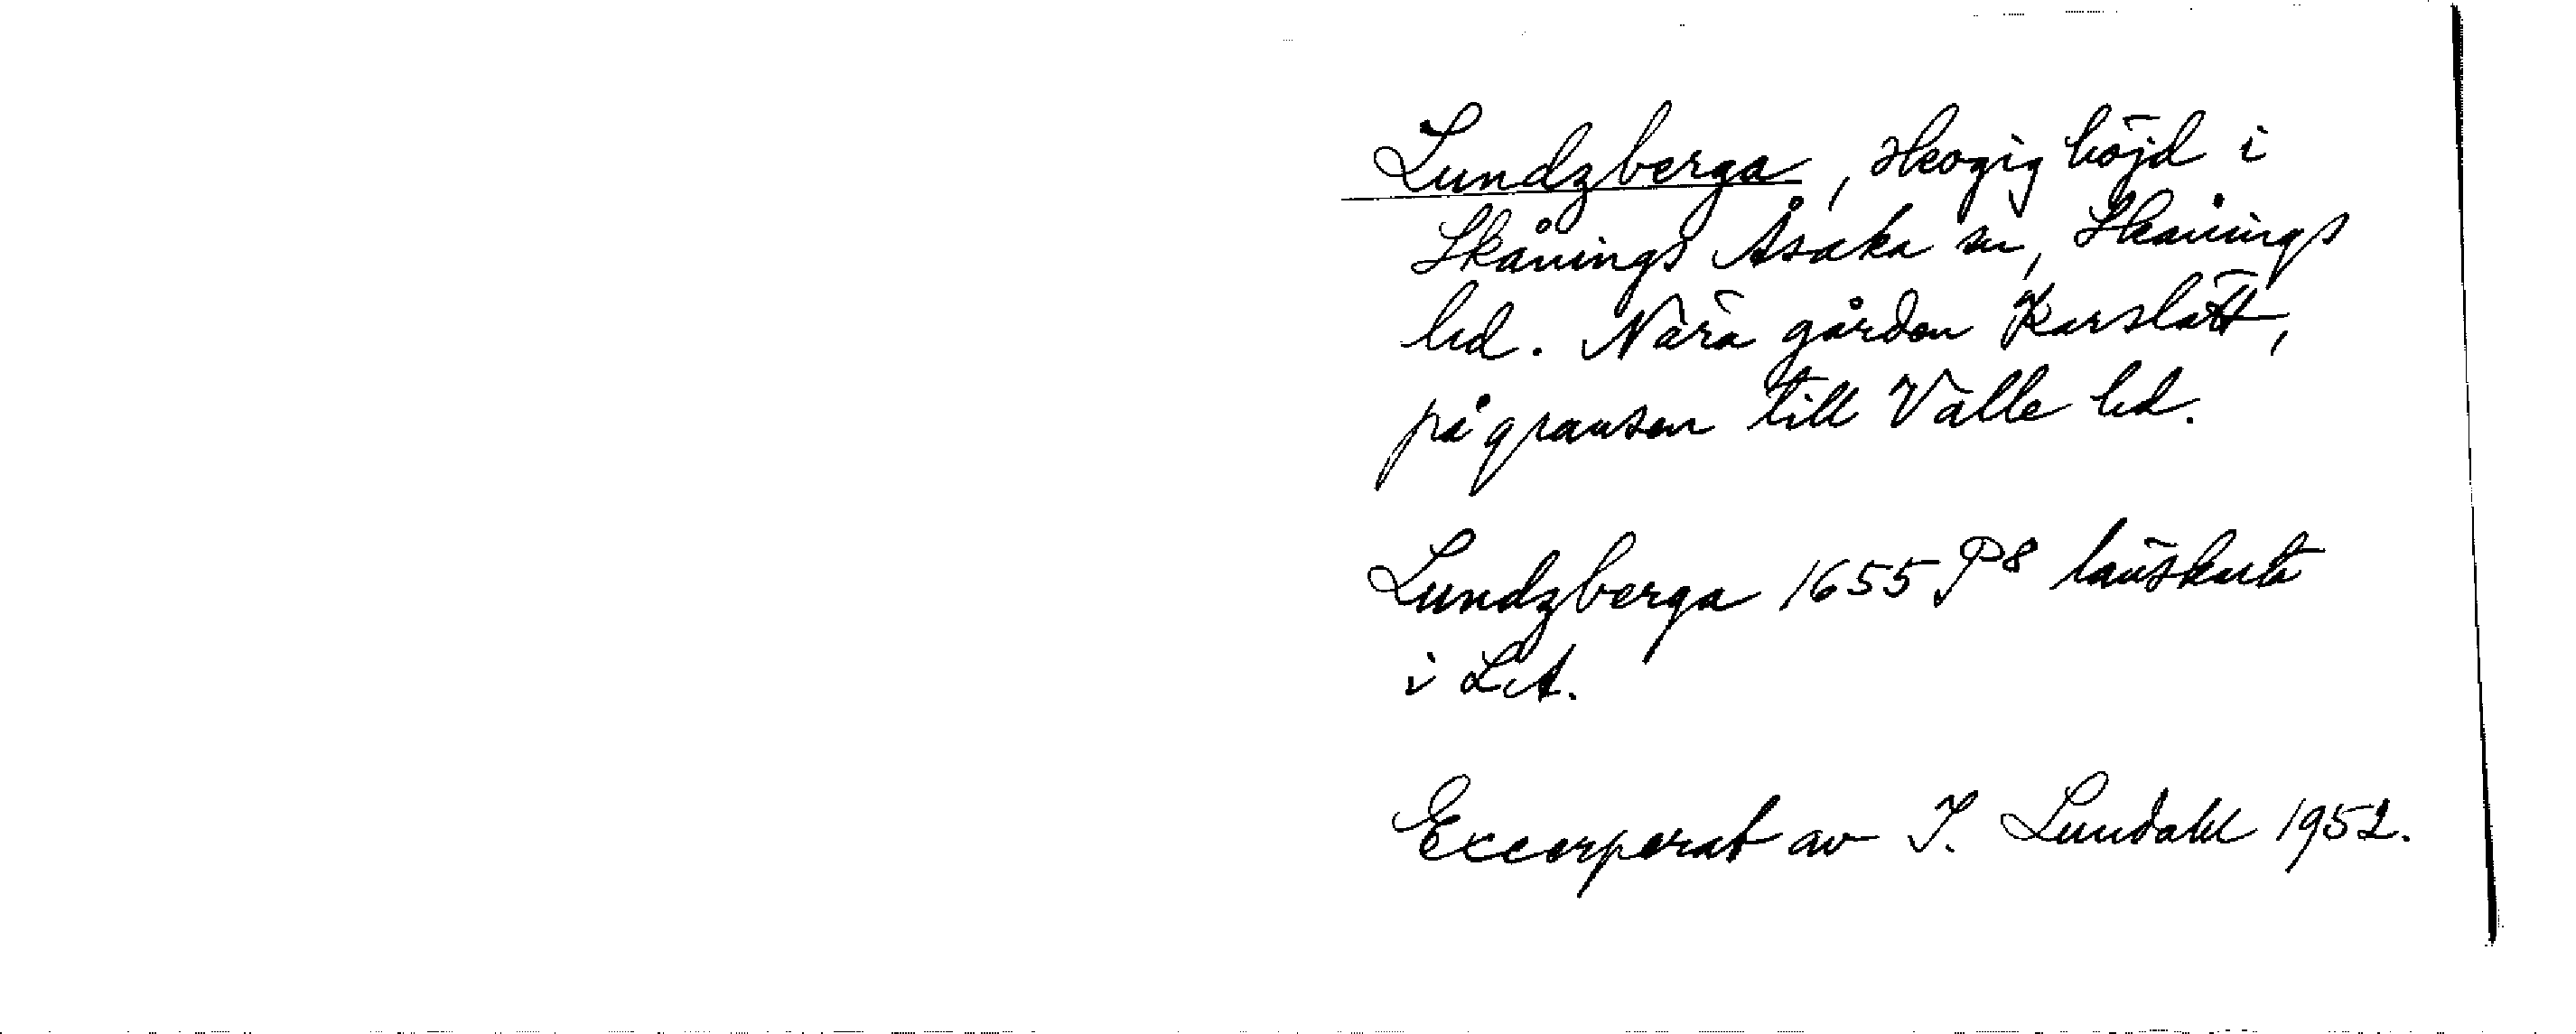 Lundzberga, skogig höjd i
Skånings Åsaka sn, Skånings
hd. Nära gården Karslätt,
på gränsen till Valle hd.
Lundzberga 1655 P8 länskarta
i LA.
Excerperat av I. Lundahl 1952.